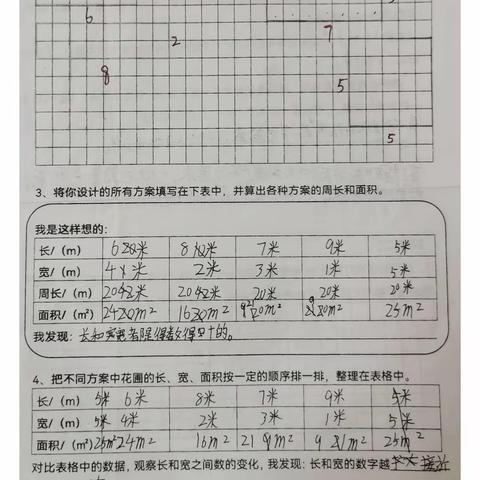 6
2
7
8
5
5
3、将你设计的所有方案填写在下表中，并算出各种方案的周长和面积。
我是这样想的：
长/（m） 6米 8米 7米 9米 5米
宽/（m） 4米 2米 3米 1米 5米
周长/（m） 20米 20米 20米 20米 20米
面积/（m²） 24m² 16m² 21 m² 9 m² 25m²
我发现：长和宽都是 得 的。
4、把不同方案中花圃的长、宽、面积按一定的顺序排一排，整理在表格中。
长/（m） 5米 6米 8米 7米 9米 5米
宽/（m） 5米 4米 2米 3米 1米 5米
面积/（m²） 25m² 24m² 16m² 21 m² 9 m² 25m²
对比表格中的数据，观察长和宽之间数的变化，我发现：长和宽的数字越 接近